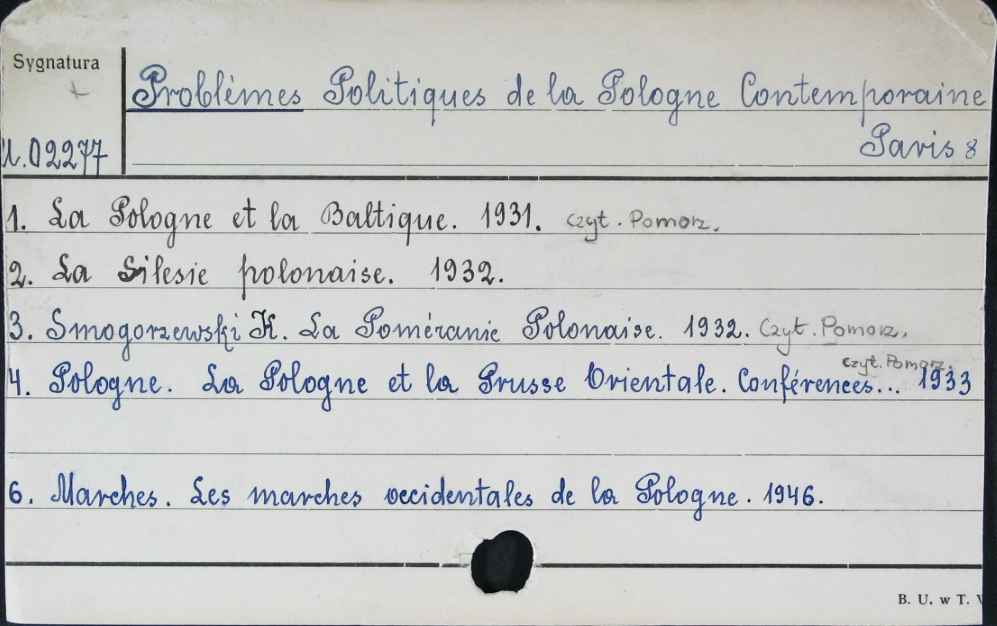 Sygnatura
Problèmes Politiques de la Pologne Contemporaine
Paris 8
02277
1. La Pologne et la Baltique. 1931. czyt. Pomorz.
2. La Silesie polonaise. 1932.
3. Smogorzewski K. La Poméranie Polonaise. 1932. Czyt. Pomorz.
czyt. Pomorz.
4. Pologne. La Pologne et la Prusse Orientale. Conférences... 1933
6. Marches. Les marches occidentales de la Pologne. 1946.
B. U. w T.